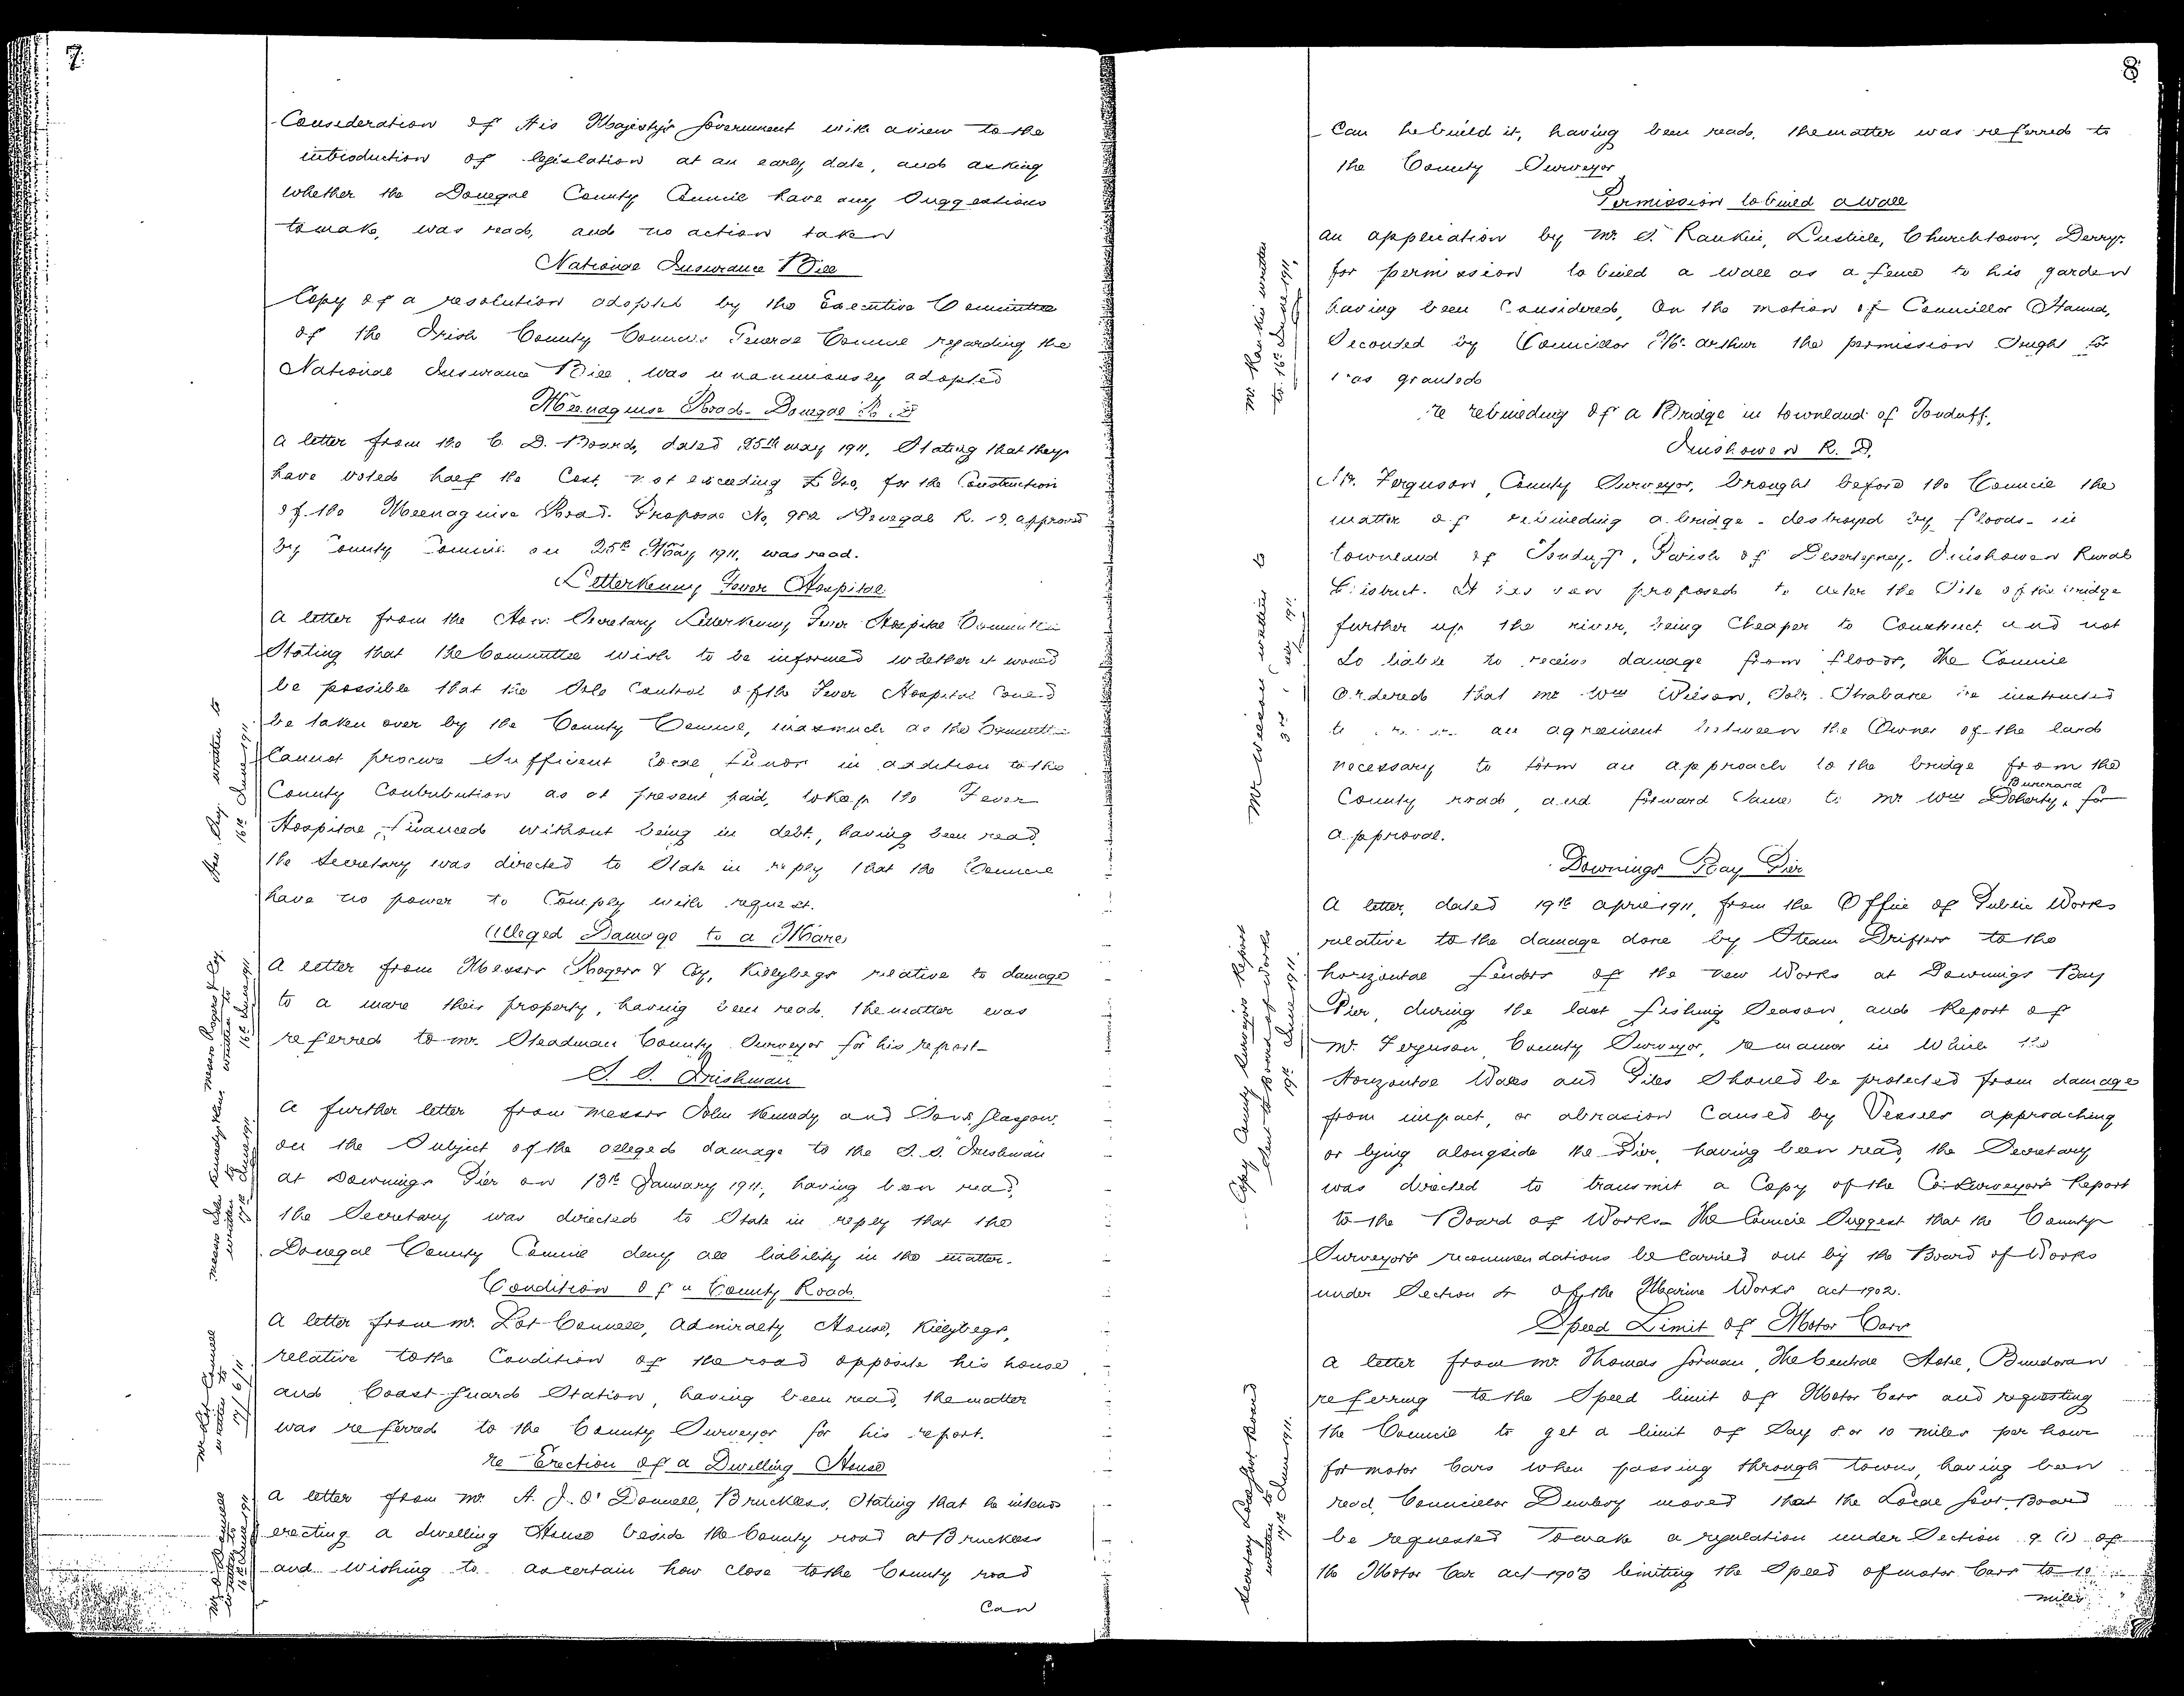 7.
Consideration of His Majesty's Government with a view to the
introduction of legislation at an early date, and asking
whether the Donegal County Council have any Suggestions
to make, was read, and no action taken
National Insurance Bill
Copy of a resolution adopted by the Executive Committee
of the Irish County Councils General Council regarding the
National Insurance Bill, was unanimously adopted
Meenaguise Road - Donegal R. D
A letter from the C. D. Board, dated 25th May 1911, Stating that they
have voted half the Cost, not exceeding for the Construction
of the Meenaguise Road. Proposal No, 982 Donegal R. D. approved
by County Council on 25th May 1911, was read.
Letterkenny Fever Hospital
A letter from the Hon: Secretary Letterkenny Fever Hospital Committee
Stating that the Committee wish to be informed whether it would
be possible that the Sole Control of the Fever Hospital Could
be taken over by the County Council, inasmuch as the Committee
Cannot procure Sufficient local funds in addition to the
County Contribution as at present paid, to keep the Fever
Hospital, financed without being in debt, having been read,
the Secretary was directed to State in reply that the Council
have no power to Comply with request.
Alleged Damage to a Mare
A letter from Messrs Rogers & Coy, Killybegs relative to damage
to a mare their property, having been read, the matter was
referred to Mr. Steadman County Surveyor for his report-
S. S. Irishman
A further letter from Messrs John Kennedy and Sons, Glasgow,
on the Subject of the alleged damage to the S. S. "Irishman
at Downings Pier on 13th January 1911, having been read,
the Secretary was directed to State in reply that the
Donegal County Council deny all liability in the matter.
Condition of a County Road
A letter from Mr. Lot Connell, Admiralty House, Killybegs,
relative to the Condition of the road opposite his house
and Coast-Guard Station, having been read, the matter
was referred to the County Surveyor for his report.
re Erection of a Dwelling House
A letter from Mr. A. J. O'Donnell, Bruckless, Stating that he intends
erecting a dwelling House beside the County road at Bruckless
and wishing to ascertain how close to the County road
Can
written to
16th June 1911
Messrs Rogers & Coy.
written to
16th June 1911
Messrs John Kennedy & Sons
written to
17th June 1911
Mr Lot Connell
written to
17/6/11
8
Can he build it, having been read, the matter was referred to
the County Surveyor
Permission to build a wall
An application by Mr. S. Rankin, Lusticle, Churchtown, Derry.
for permission to build a wall as a fence to his garden
having been Considered, On the motion of Councillor Hanna,
Seconded by Councillor McArthur the permission Sought for
was granted
re rebuilding of a Bridge in townland of Tonduff,
Inishowen R. D.
Mr. Ferguson, County Surveyor, brought before the Council the
matter of rebuilding a bridge - destroyed by floods - in
townland of Tonduff, Parish of Desertegney, Inishowen Rural
District. It was now proposed to alter the Site of the bridge
further up the river, being Cheaper to Construct and not
So liable to receive damage from floods, The Council
Ordered that Mr Wm Wilson, Solr. Strabane be instructed
to an agreement between the Owner of the land
necessary to form an approach to the bridge from the
County road, and forward Same to Mr Wm Doherty, Buncrana for
approval.
Downings Bay Pier
A letter, dated 19th April 1911, from the Office of Public Works
relative to the damage done by Steam Drifters to the
horizontal fenders of the new Works at Downings Bay
Pier, during the last fishing Season and Report of
Mr. Ferguson County Surveyor, re manner in which the
Horizontal Wales and Piles Should be protected from damage
from impact, or abrasion Caused by Vessels approaching
or lying alongside the Pier, having been read, the Secretary
was directed to transmit a Copy of the Co. Surveyor's Report
to the Board of Works - The Council Suggest that the County
Surveyor's recommendations be Carried out by the Board of Works
under Section 4 of the Marine Works Act 1902.
Speed Limit of Motor Cars
A letter from Mr. Thomas Gorman, The Central Hotel, Bundoran
referring to the Speed limit of Motor Cars and requesting
the Council to get a limit of Say 8 or 10 miles per hour
for motor Cars when passing through towns, having been
read, Councillor Dunlevy moved that the Local Govt. Board
be requested to make a regulation under Section 9 (1) of
the Motor Car Act 1903 limiting the Speed of motor Cars to 10
miles
Mr. Rankin written
to 16th June 1911.
Mr Wilson written to
Copy County Surveyors Report
sent to Board of Works
19th June 1911.
Secretary Local Govt Board
written to
17th June 1911.